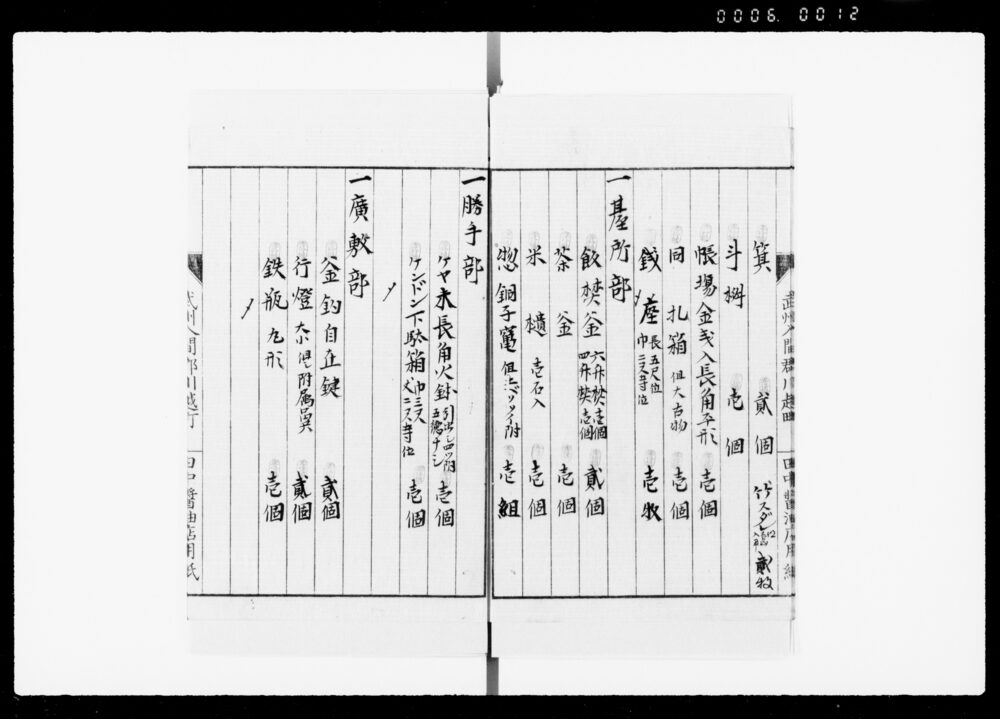 0006.0012
箕 貳個 竹スダレ 貳枚
斗桝 壱個
帳場金錢入長角平形 壱個
同 札箱 但大古物 壱個
銭座 長五尺位 巾二尺五寸位 壱枚
一臺所部
飯焚釜 六升焚壱個 四升焚壱個 貳個
茶釜 壱個
米櫃 壱石入 壱個
惣銅子竃 壱組
一勝手部
ケヤ木長角火鉢 壱個
ケンドン下駄箱 巾三尺 丈二尺五寸位 壱個
〆
一廣敷部
釜釣自在鍵 貳個
行燈 大小但附属具 貳個
鉄瓶 丸形 壱個
〆
武州入間郡川越町 田中醤油店用紙